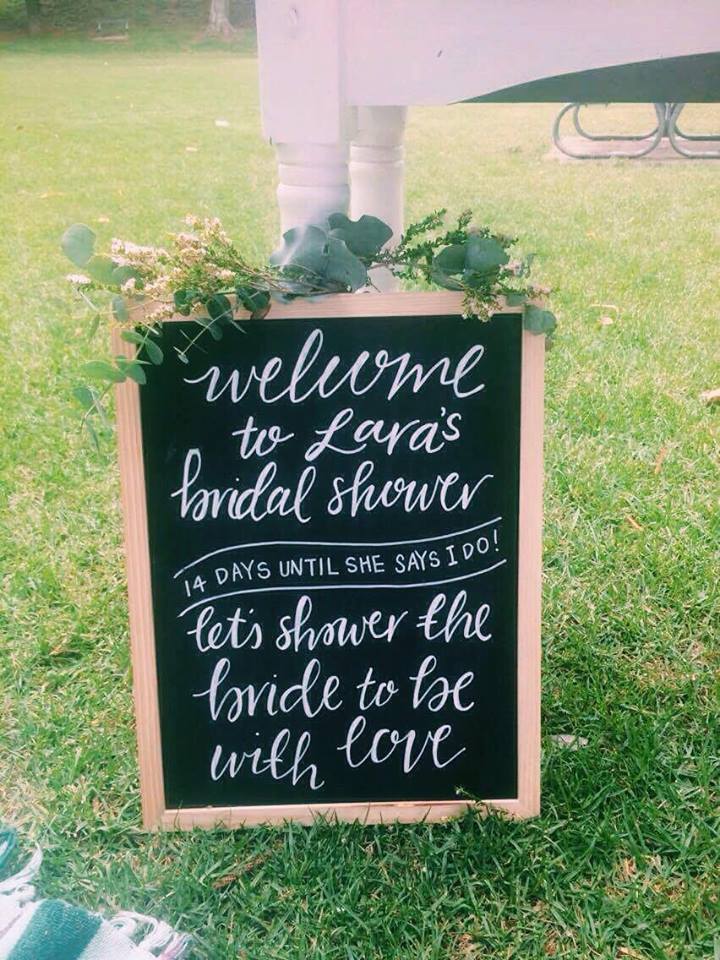 welcome
to Lara's
bridal shower
14 DAYS UNTIL SHE SAYS I DO!
let's shower the
bride to be
with love